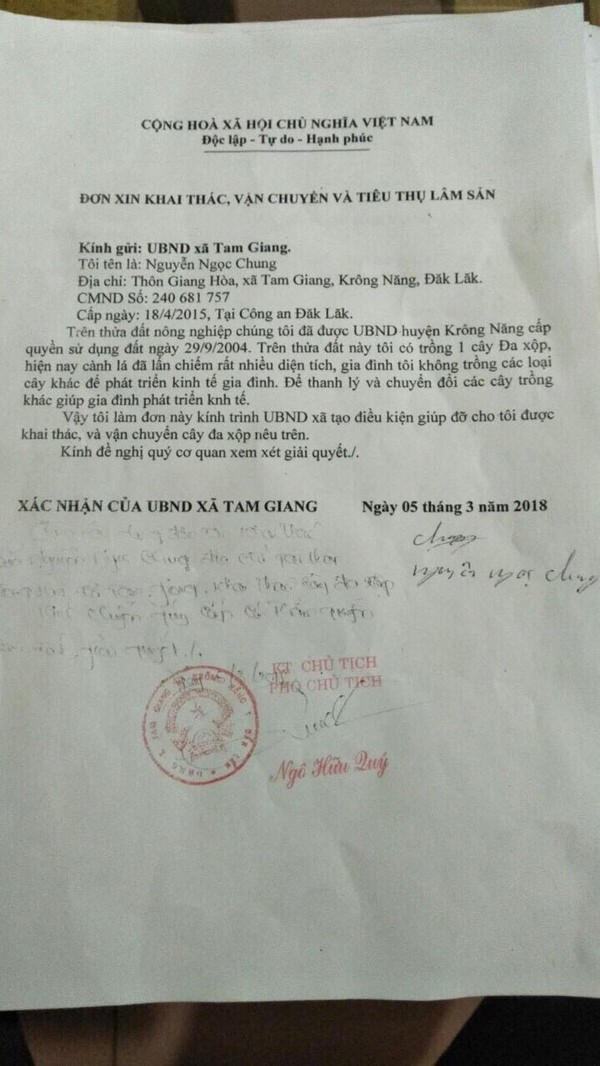 CỘNG HOÀ XÃ HỘI CHỦ NGHĨA VIỆT NAM
Độc lập - Tự do - Hạnh phúc
ĐƠN XIN KHAI THÁC, VẬN CHUYỂN VÀ TIÊU THỤ LÂM SẢN
Kính gửi: UBND xã Tam Giang.
Tôi tên là: Nguyễn Ngọc Chung
Địa chỉ: Thôn Giang Hòa, xã Tam Giang, Krông Năng, Đăk Lăk.
CMND Số: 240 681 757
Cấp ngày: 18/4/2015, Tại Công an Đăk Lăk.
Trên thửa đất nông nghiệp chúng tôi đã được UBND huyện Krông Năng cấp
quyền sử dụng đất ngày 29/9/2004. Trên thửa đất này tôi có trồng 1 cây Đa xộp,
hiện nay cành lá đã lấn chiếm rất nhiều diện tích, gia đình tôi không trồng các loại
cây khác để phát triển kinh tế gia đình. Để thanh lý và chuyển đổi các cây trồng
khác giúp gia đình phát triển knh tế.
Vậy tôi làm đơn này kính trình UBND xã tạo điều kiện giúp đỡ cho tôi được
khai thác, và vận chuyển cây đa xộp nêu trên.
Kính đề nghị quý cơ quan xem xét giải quyết./.
XÁC NHẬN CỦA UBND XÃ TAM GIANG Ngày 05 tháng 3 năm 2018
Nguyễn Ngọc Chung
KT CHỦ TỊCH
PHÓ CHỦ TỊCH
Ngô Hữu Quý